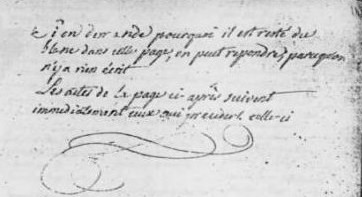 Si l'on demande pourquoi il est resté du
blanc dans cette page, on peut repondre, parcequ'on
n'y a rien écrit
Les actes de la page ci-après suivent
immédiatement ceux qui précédent celle-ci